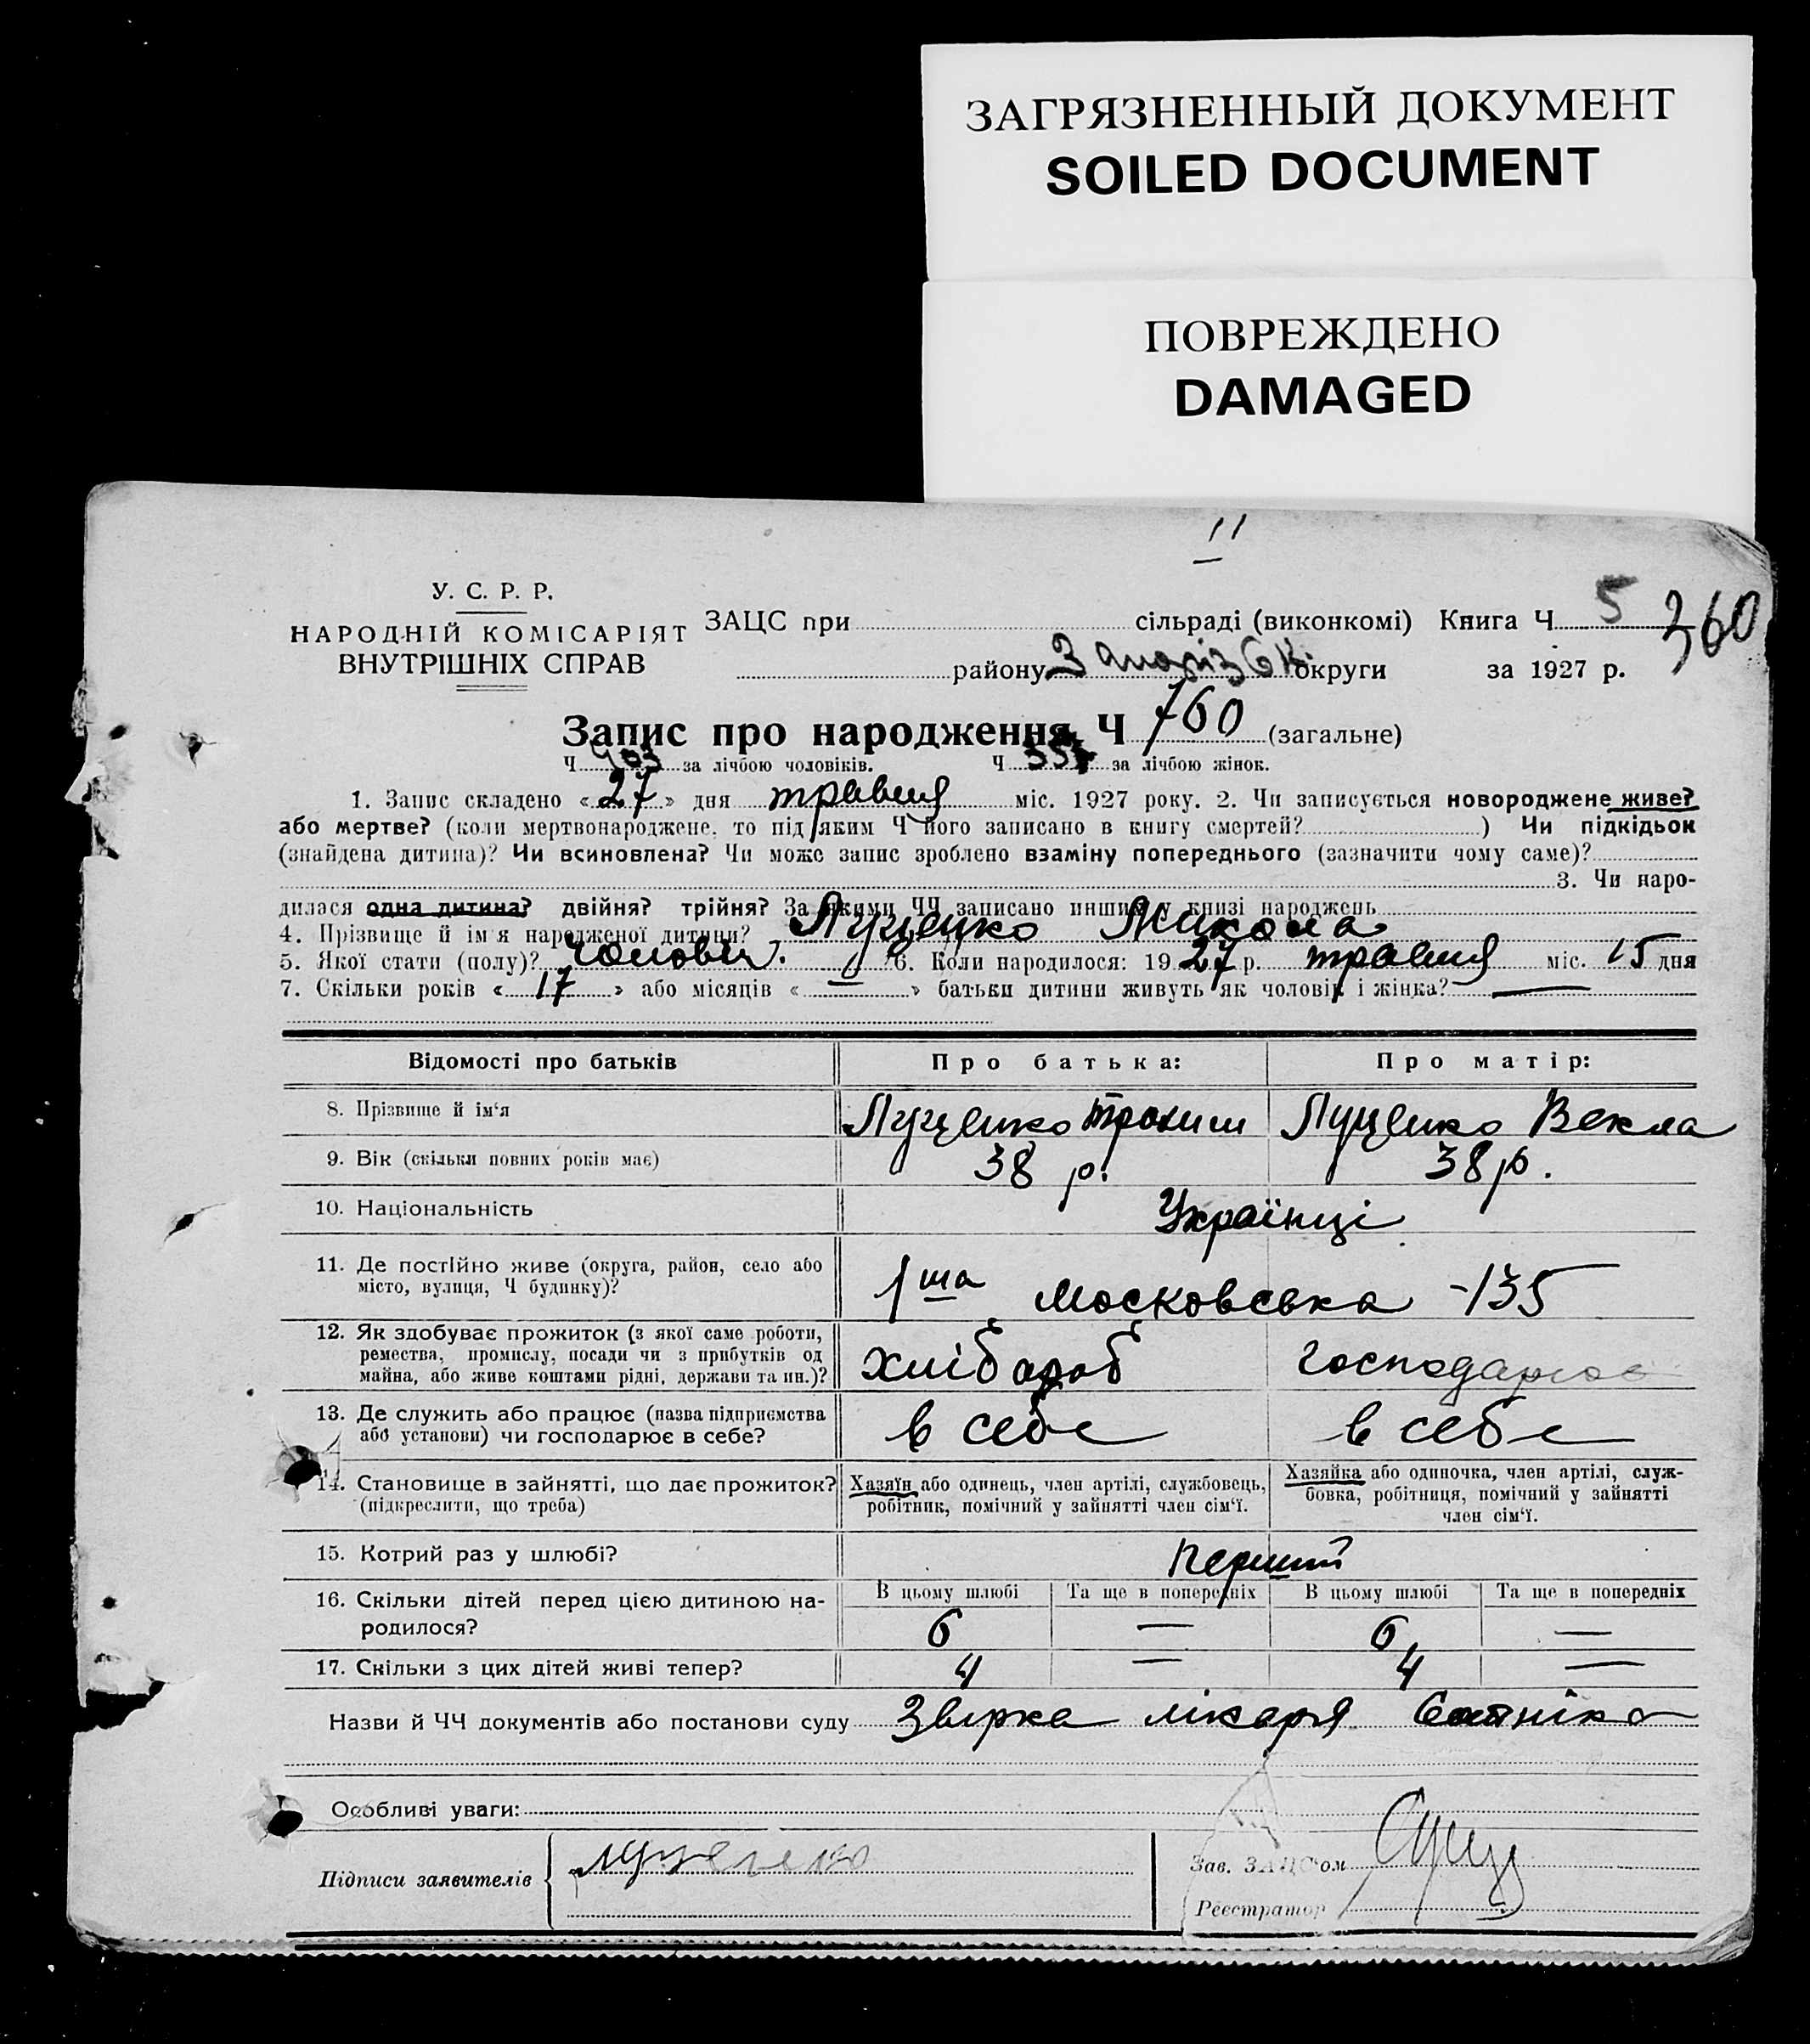 ЗАГРЯЗНЕННЫЙ ДОКУМЕНТ
SOILED DOCUMENT
ПОВРЕЖДЕНО
DAMAGED
11
У. С. Р. Р.
НАРОДНІЙ КОМІСАРІЯТ
ВНУТРІШНІХ СПРАВ
ЗАЦС при сільраді (виконкомі) Книга Ч 5 360
району округи за 1927 р.
Запис про народження Ч 760 (загальне)
Ч 403 за лічбою чоловіків. Ч за лічбою жінок.
1. Запис складено « 27 » дня травня міс. 1927 року. 2. Чи записується новороджене живе?
або мертве? (коли мертвонароджене, то під яким Ч його записано в книгу смертей? ) Чи підкідьок
(знайдена дитина)? Чи всиновлена? Чи може запис зроблено взаміну попереднього (зазначити чому саме)?
3. Чи наро-
дилася одна дитина? двійня? трійня? За якими ЧЧ записано инших у книзі народжень
4. Прізвище й ім'я народженої дитини? Луценко Микола
5. Якої стати (полу)? чоловіч. 6. Коли народилося: 19 27 р. травня міс. 15 дня
7. Скільки років « 17 » або місяців « — » батьки дитини живуть як чоловік і жінка? —
Відомості про батьків Про батька: Про матір:
8. Прізвище й ім'я Луценко Трохим Луценко Векла
9. Вік (скільки повних років має) 38 р. 38 р.
10. Національність Українці
11. Де постійно живе (округа, район, село або
місто, вулиця, Ч будинку)? 1ша Московська -135
12. Як здобуває прожиток (з якої саме роботи,
ремества, промислу, посади чи з прибутків од
майна, або живе коштами рідні, держави та ин.)? хлібороб
13. Де служить або працює (назва підприємства
або установи) чи господарює в себе? в себе в себе
14. Становище в зайнятті, що дає прожиток?
(підкреслити, що треба)
Хазяїн або одинець, член артілі, службовець,
робітник, помічний у зайнятті член сім'ї.
Хазяйка або одиночка, член артілі, служ-
бовка, робітниця, помічний у зайнятті
член сім'ї.
15. Котрий раз у шлюбі? перший
В цьому шлюбі Та ще в попередніх В цьому шлюбі Та ще в попередніх
16. Скільки дітей перед цією дитиною на-
родилося? 6 — 6 —
17. Скільки з цих дітей живі тепер? 4 — 4 —
Назви й ЧЧ документів або постанови суду лікаря
Особливі уваги:
Підписи заявителів Луценко
Зав. ЗАЦС'ом
Реєстратор